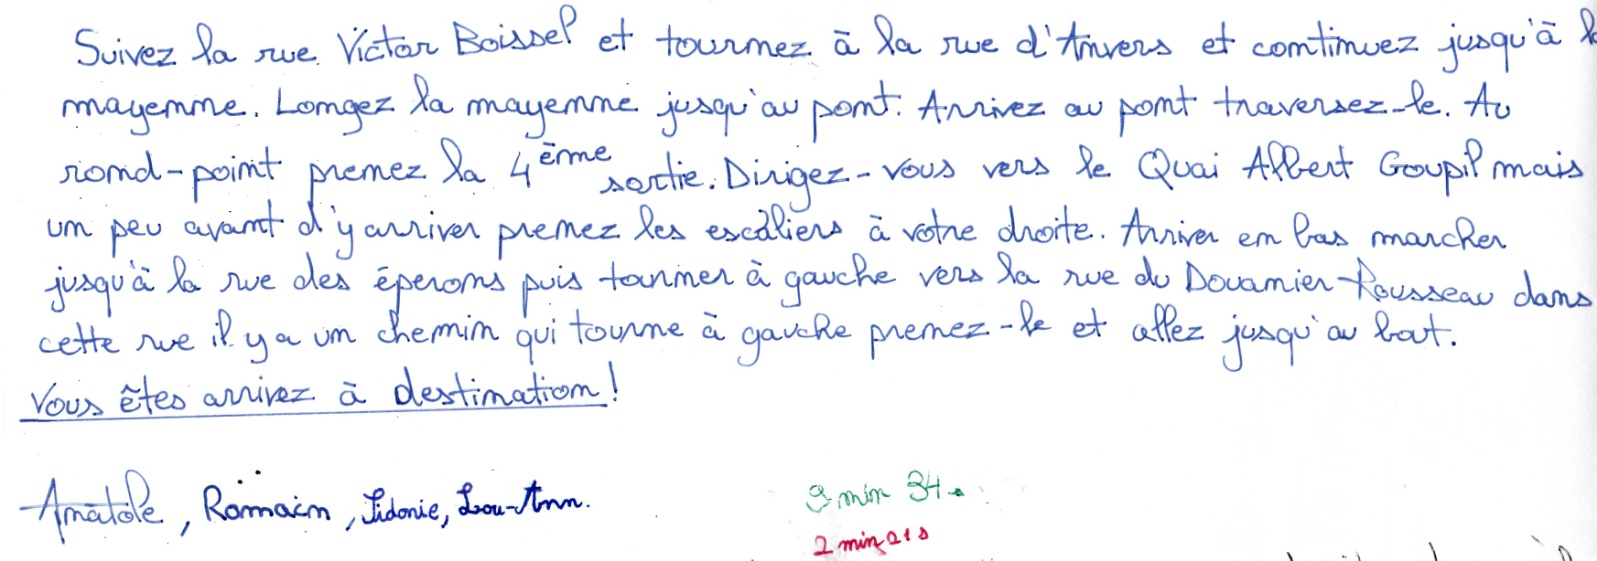 Suivez la rue Victor Boissel et tournez à la rue d'Anvers et continuez jusqu'à
mayenne. Longez la mayenne jusqu'au pont. Arrivez au pont traversez-le. Au
rond-point prenez la 4ème sortie. Dirigez-vous vers le Quai Albert Goupil mais
un peu avant d'y arriver prenez les escaliers à votre droite. Arriver en bas marcher
jusqu'à la rue des éperons puis tourner à gauche vers la rue du Douanier-Rousseau dans
cette rue il y a un chemin qui tourne à gauche prenez-le et allez jusqu'au bout.
Vous êtes arrivez à destination!
Anatole, Romain, Sidonie, Lou-Ann.
9 min 34 s
2 min 21 s